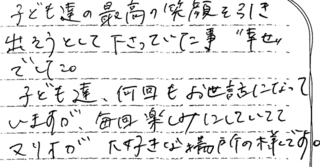 子ども達の最高の笑顔を引き
出そうとして下さっていた事“幸せ”
でした。
子ども達、何回もお世話になって
いますが、毎回楽しみにしていて
スタジオが大好きな場所の様です。